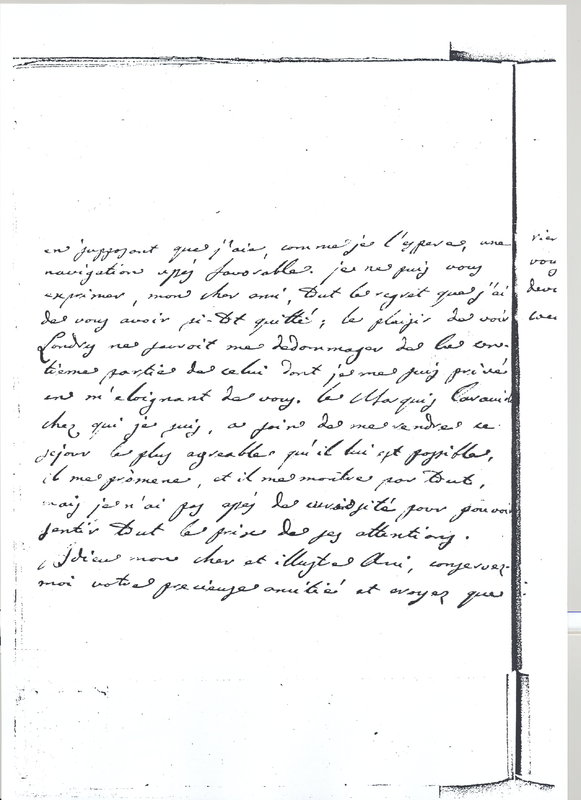 en supposant que j'aie, comme je l'espere, une
navigation assés favorable. je ne puis vous
exprimer, mon cher ami, tout le regret que j'ai
de vous avoir si-tôt quitté; le plaisir de voir
Londres ne sauroit me dedommager de la cen-
tieme partie de celui dont je me suis privé
en m'eloignant de vous. le Marquis Caraccioli
chez qui je suis, a soin de me rendre ce
sejour le plus agreable qu'il lui est possible,
il me promene, et il me montre par tout,
mais je n'ai pas assés de curiosité pour pouvoir
sentir tout le prix de ses attentions.
Adieu mon cher et illustre Ami, conservez-
moi votre precieuse amitié et croyez que